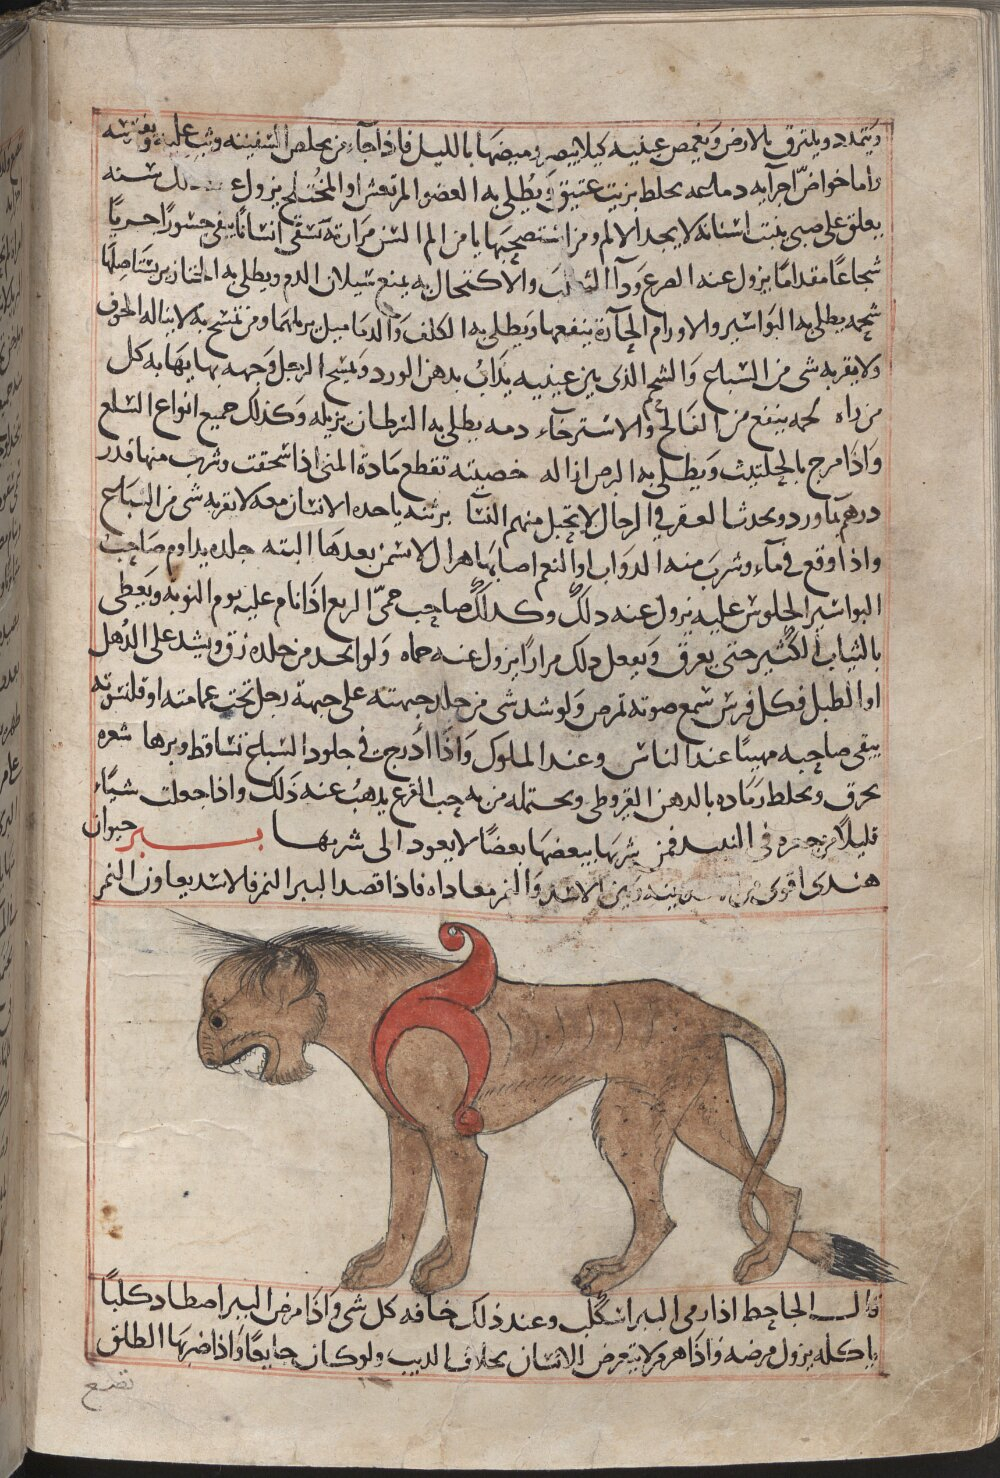 ويتمدد ويلتزق بالارض ويغمض عينيه كيلا يبصر وميضها بالليل فاذا جاء من يخلص السفينة وثب عليه وافترسه
واما خواص اجزايه دماغه يخلط بزيت عتيق ويطلى به العضو المرتعش او المختلج يزول سنه
يعلق على صبى ينبت اسنانه لا يجد الالم ومن استصحبها يامن الم السن مرارته تسقى انسانا يبقى جسورا جريا
شجاعا مقداما يزول عنه الصرع وداء الثعلب والاكتحال به يمنع سيلان الدم ويطلى به الخنازير يستاصلها
شحمه يطلى به البواسير والاورام الحارة ينفعها ويطلى به الكلف والدماميل يزيلهما ومن تمسح به لا يناله الخوف
ولا يقربه شى من السباع والشحم الذى بين عينيه يذاب بدهن الورد ويمسح الرجل وجهه بها يهابه كل
من راه لحمه ينفع من الفالج والاسترخاء دمه يطلى به السرطان يزيله وكذلك جميع انواع السلع
واذا مزج بالحلتيت ويطلى به البرص ازاله خصيته تقطع مادة المنى اذا سحقت وشرب منها قدر
درهم بماورد ويحدث العقر فى الرجال لا تحبل منهم النسا برثنه ياخده الانسان معه لا يقربه شى من السباع
واذا وقع فى ماء وشرب منه الدواب او النعم اصابها هزال لا سمن بعدها البته جلده يداوم صاحب
البواسير الجلوس عليه يزول عنه دلك وكدلك صاحب حمى الربع اذا نام عليه يوم النوبه ويغطى
بالثياب الكثير حتى يعرق ويفعل دلك مرارا يزول عنه حماه ولو اتخد من جلده زق ويشد على الدهل
او الطبل فكل فرس سمع صوته تمرض ولو شد شى من جلد جبهته على جبهة رجل تحت عمامته او قلنسوته
يبقى صاحبه مهيبا عند الناس وعند الملوك واذا ادرجت فى جلود السباع تساقط وبرها شعره
يحرق ويخلط رماده بالدهن القيروطى ويحتمله من به حب القرع يدهب عنه ذلك واذا جعلت شياء
قليلا من جعره فى النبيد فمن شربها يبغضها بغضا لا يعود الى شربها ببر حيوان
هندى اقوى من بينه وبين الاسد والنمر معاداه فاذا قصد الببر النمر فالاسد يعاون النمر
قال الجاحظ اذا رمى الببر استكلب وعند ذلك خافه كل شى واذا مرض الببر اصطاد كلبا
ياكله يزول مرضه واذا هرم لا يتعرض الانسان بخلاف الديب ولو كان جايعا واذا ضربها الطلق
تضع